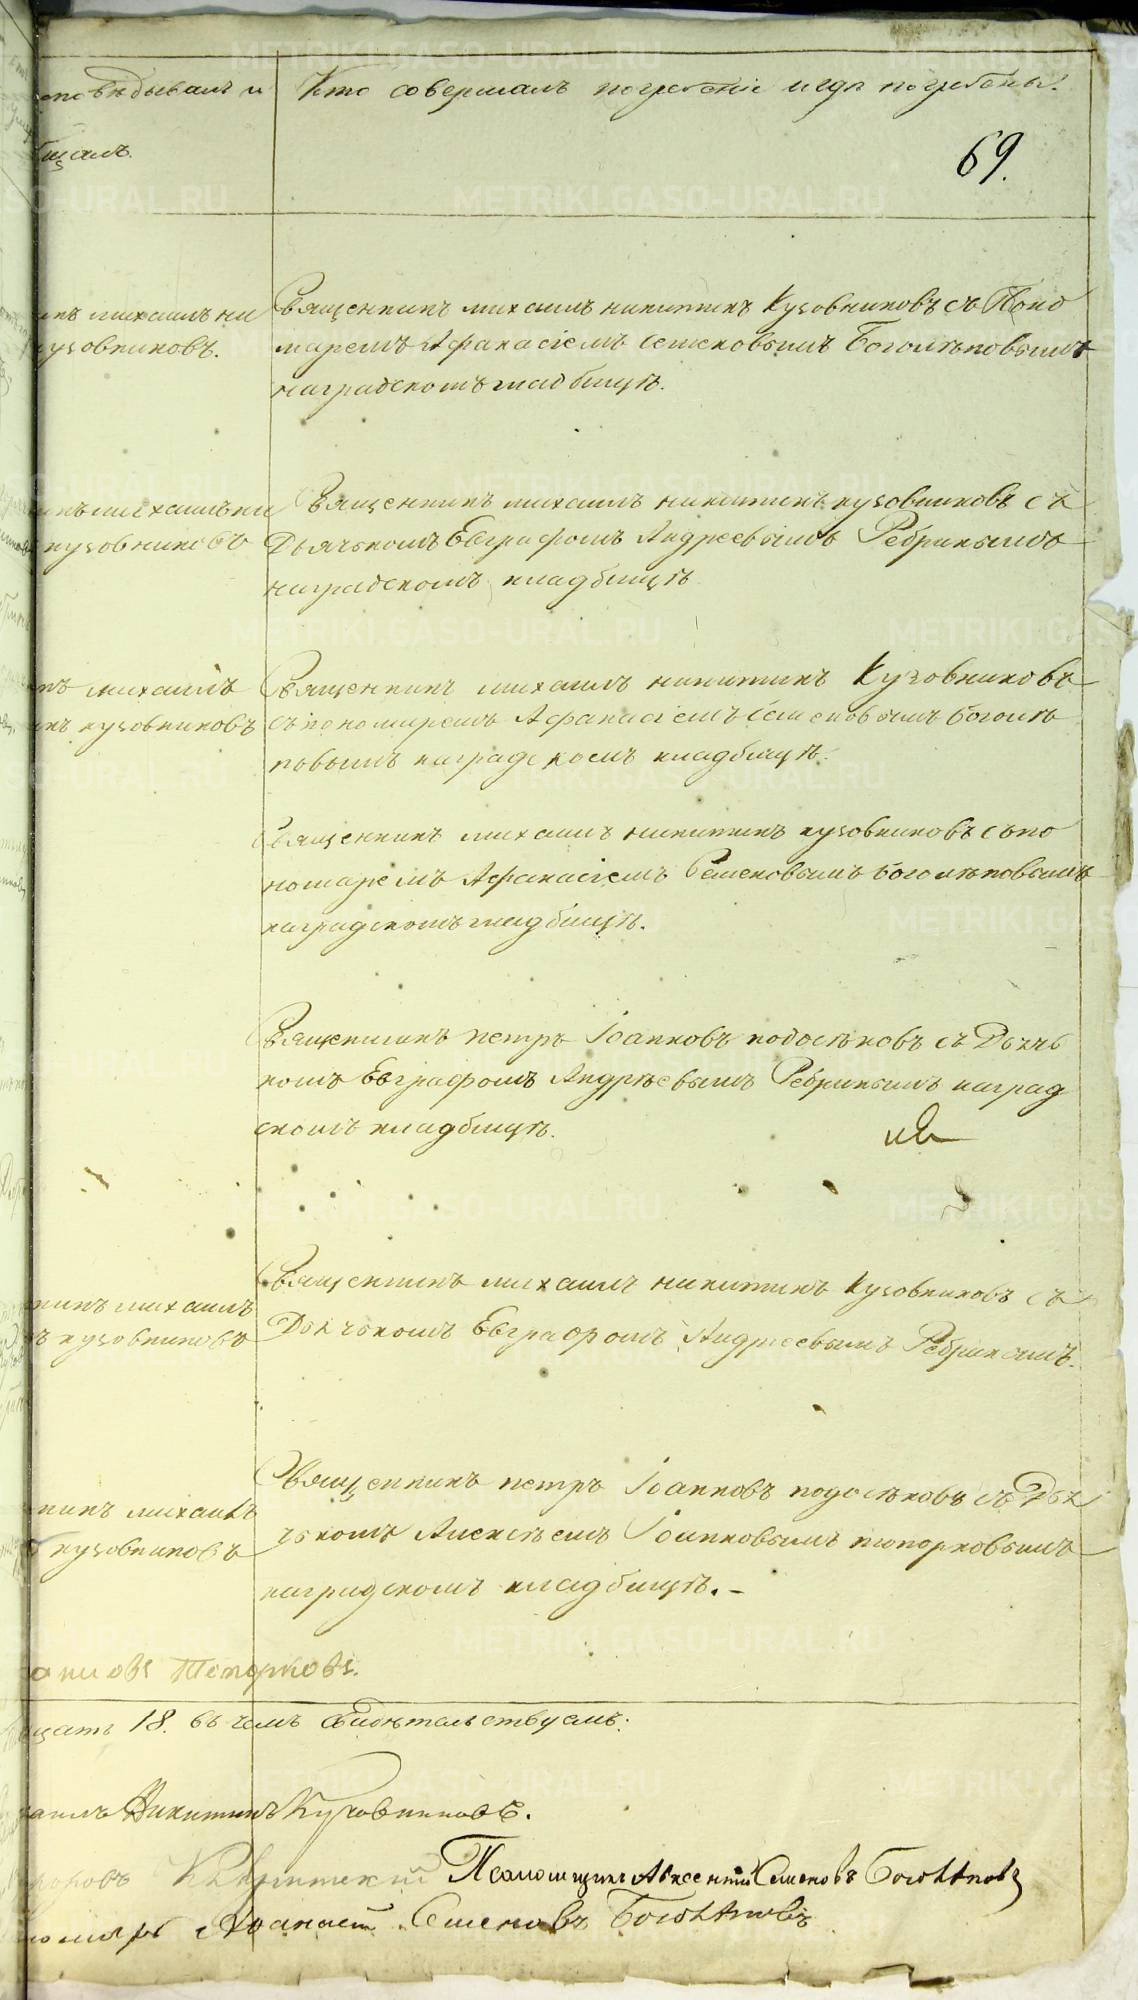 повѣдывалъ и Кто совершалъ погребеніе и гдѣ погребены.
бщалъ.
69.
михаилъ ни Священникъ михаилъ никитинъ Кузовниковъ съ Поно
кузовниковъ. маремъ Афанасіемъ Семеновымъ Боголѣповымъ
наградскомъ кладбищѣ.
михаилъ ни Священникъ михаилъ никитинъ кузовниковъ съ
кузовниковъ Дьячькомъ Евграфомъ Андреевымъ Ребринымъ
наградскомъ кладбищѣ
михаилъ Священникъ михаилъ никитинъ Кузовниковъ
инъ кузовниковъ съ пономаремъ Афанасіемъ Семеновымъ боголѣ
повымъ наградскомъ кладбищѣ.
Священникъ михаилъ никитинъ кузовниковъ съ по
номаремъ Афанасіемъ Семеновымъ боголѣповымъ
наградскомъ кладбищѣ.
Священникъ петръ Іоанновъ подосѣновъ съ Дьячь
комъ Евграфомъ Андрѣевымъ Ребринымъ наград
скомъ кладбищѣ.
никъ михаилъ Священникъ михаилъ никитинъ Кузовниковъ съ
ъ кузовниковъ Дьячькомъ Евграфомъ Андреевымъ Ребринымъ.
никъ михаилъ Священникъ петръ Іоанновъ подосѣновъ съ Дья
кузовниковъ чькомъ Алексѣемъ Іоанновымъ топорковымъ
наградскомъ кладбищѣ. –
анновъ Топорковъ.
цать 18. въ чемъ свидѣтельствуемъ:
хаилъ Никитинъ Кузовниковъ.
Псаломщикъ Авксентій Семеновъ Боголѣповъ
номарь Афанасій Семеновъ Боголѣповъ
METRIKI.GASO-URAL.RU